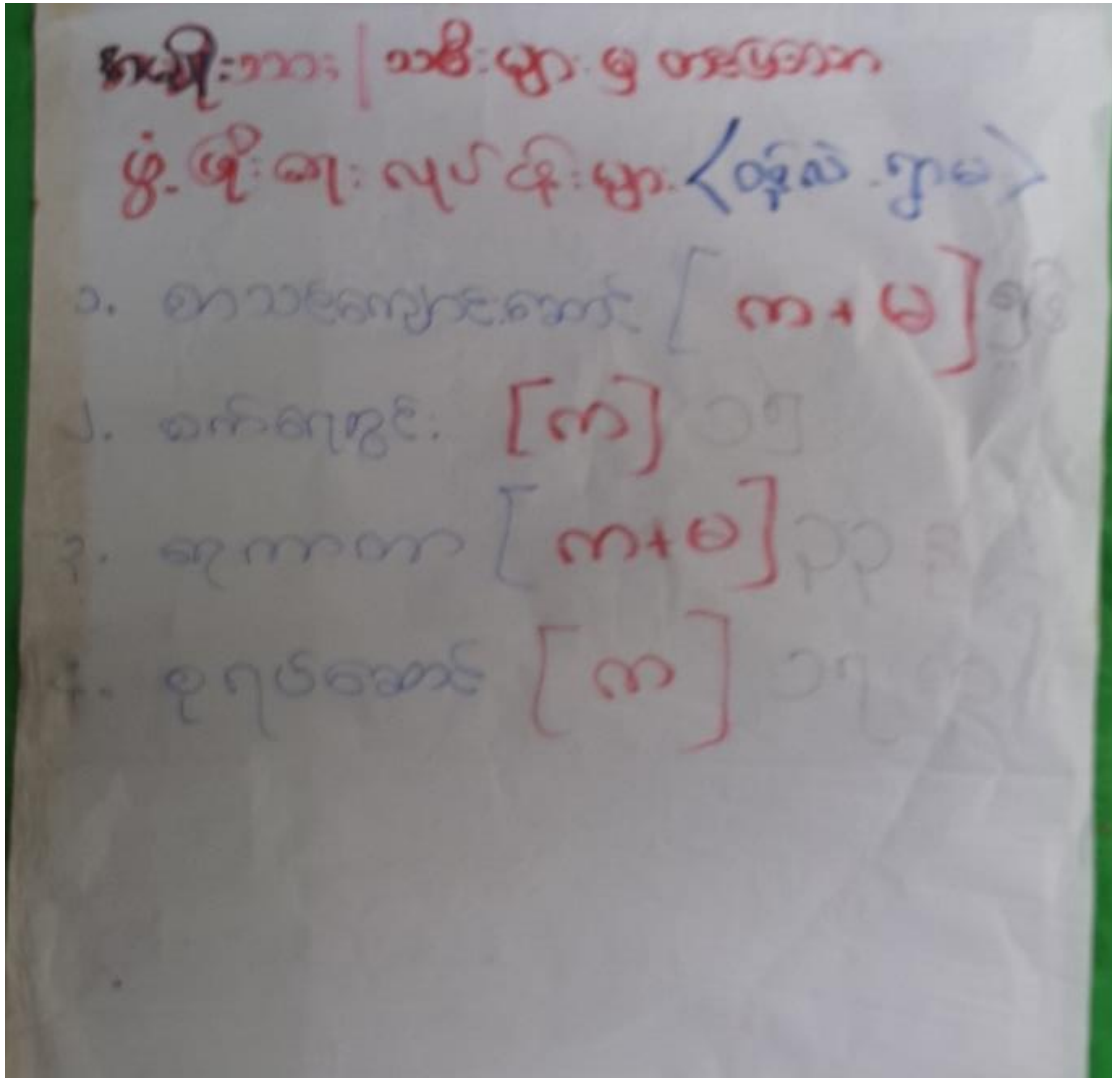 အမျိုးသား | သမီးများ မှ တင်ပြသော
ဖွံ့ဖြိုးရေး လုပ်ငန်းများ <တန့်လဲ ရွာမ>
၁. စာသင်ကျောင်းဆောင် [ က + မ ]
၂. စက်ရေတွင်း [က] ၁၅
၃. ရေကာတာ [ က+မ ] ၃၃
၄. စုရပ်ဆောင် [ က ] ၁၇